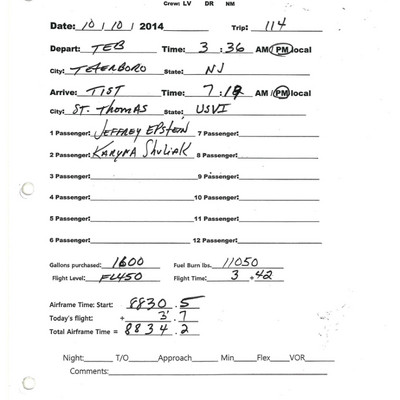 Crew: LV DR NM
Date: 10 / 10 / 2014 Trip: 114
Depart: TEB Time: 3 : 36 AM / PM local
City: TETERBORO State: NJ
Arrive: TIST Time: 7 : 18 AM / PM local
City: ST. THOMAS State: USVI
1 Passenger: JEFFREY EPSTEIN 7 Passenger:
2 Passenger: KARYNA SHULIAK 8 Passenger:
3 Passenger: 9 Passenger:
4 Passenger: 10 Passenger:
5 Passenger: 11 Passenger:
6 Passenger: 12 Passenger:
Gallons purchased: 1600 Fuel Burn lbs. 11050
Flight Level: FL450 Flight Time: 3 .42
Airframe Time: Start: 8830 . 5
Today's flight: + 3 . 7
Total Airframe Time = 8834 . 2
Night: T/O Approach Min Flex VOR
Comments: